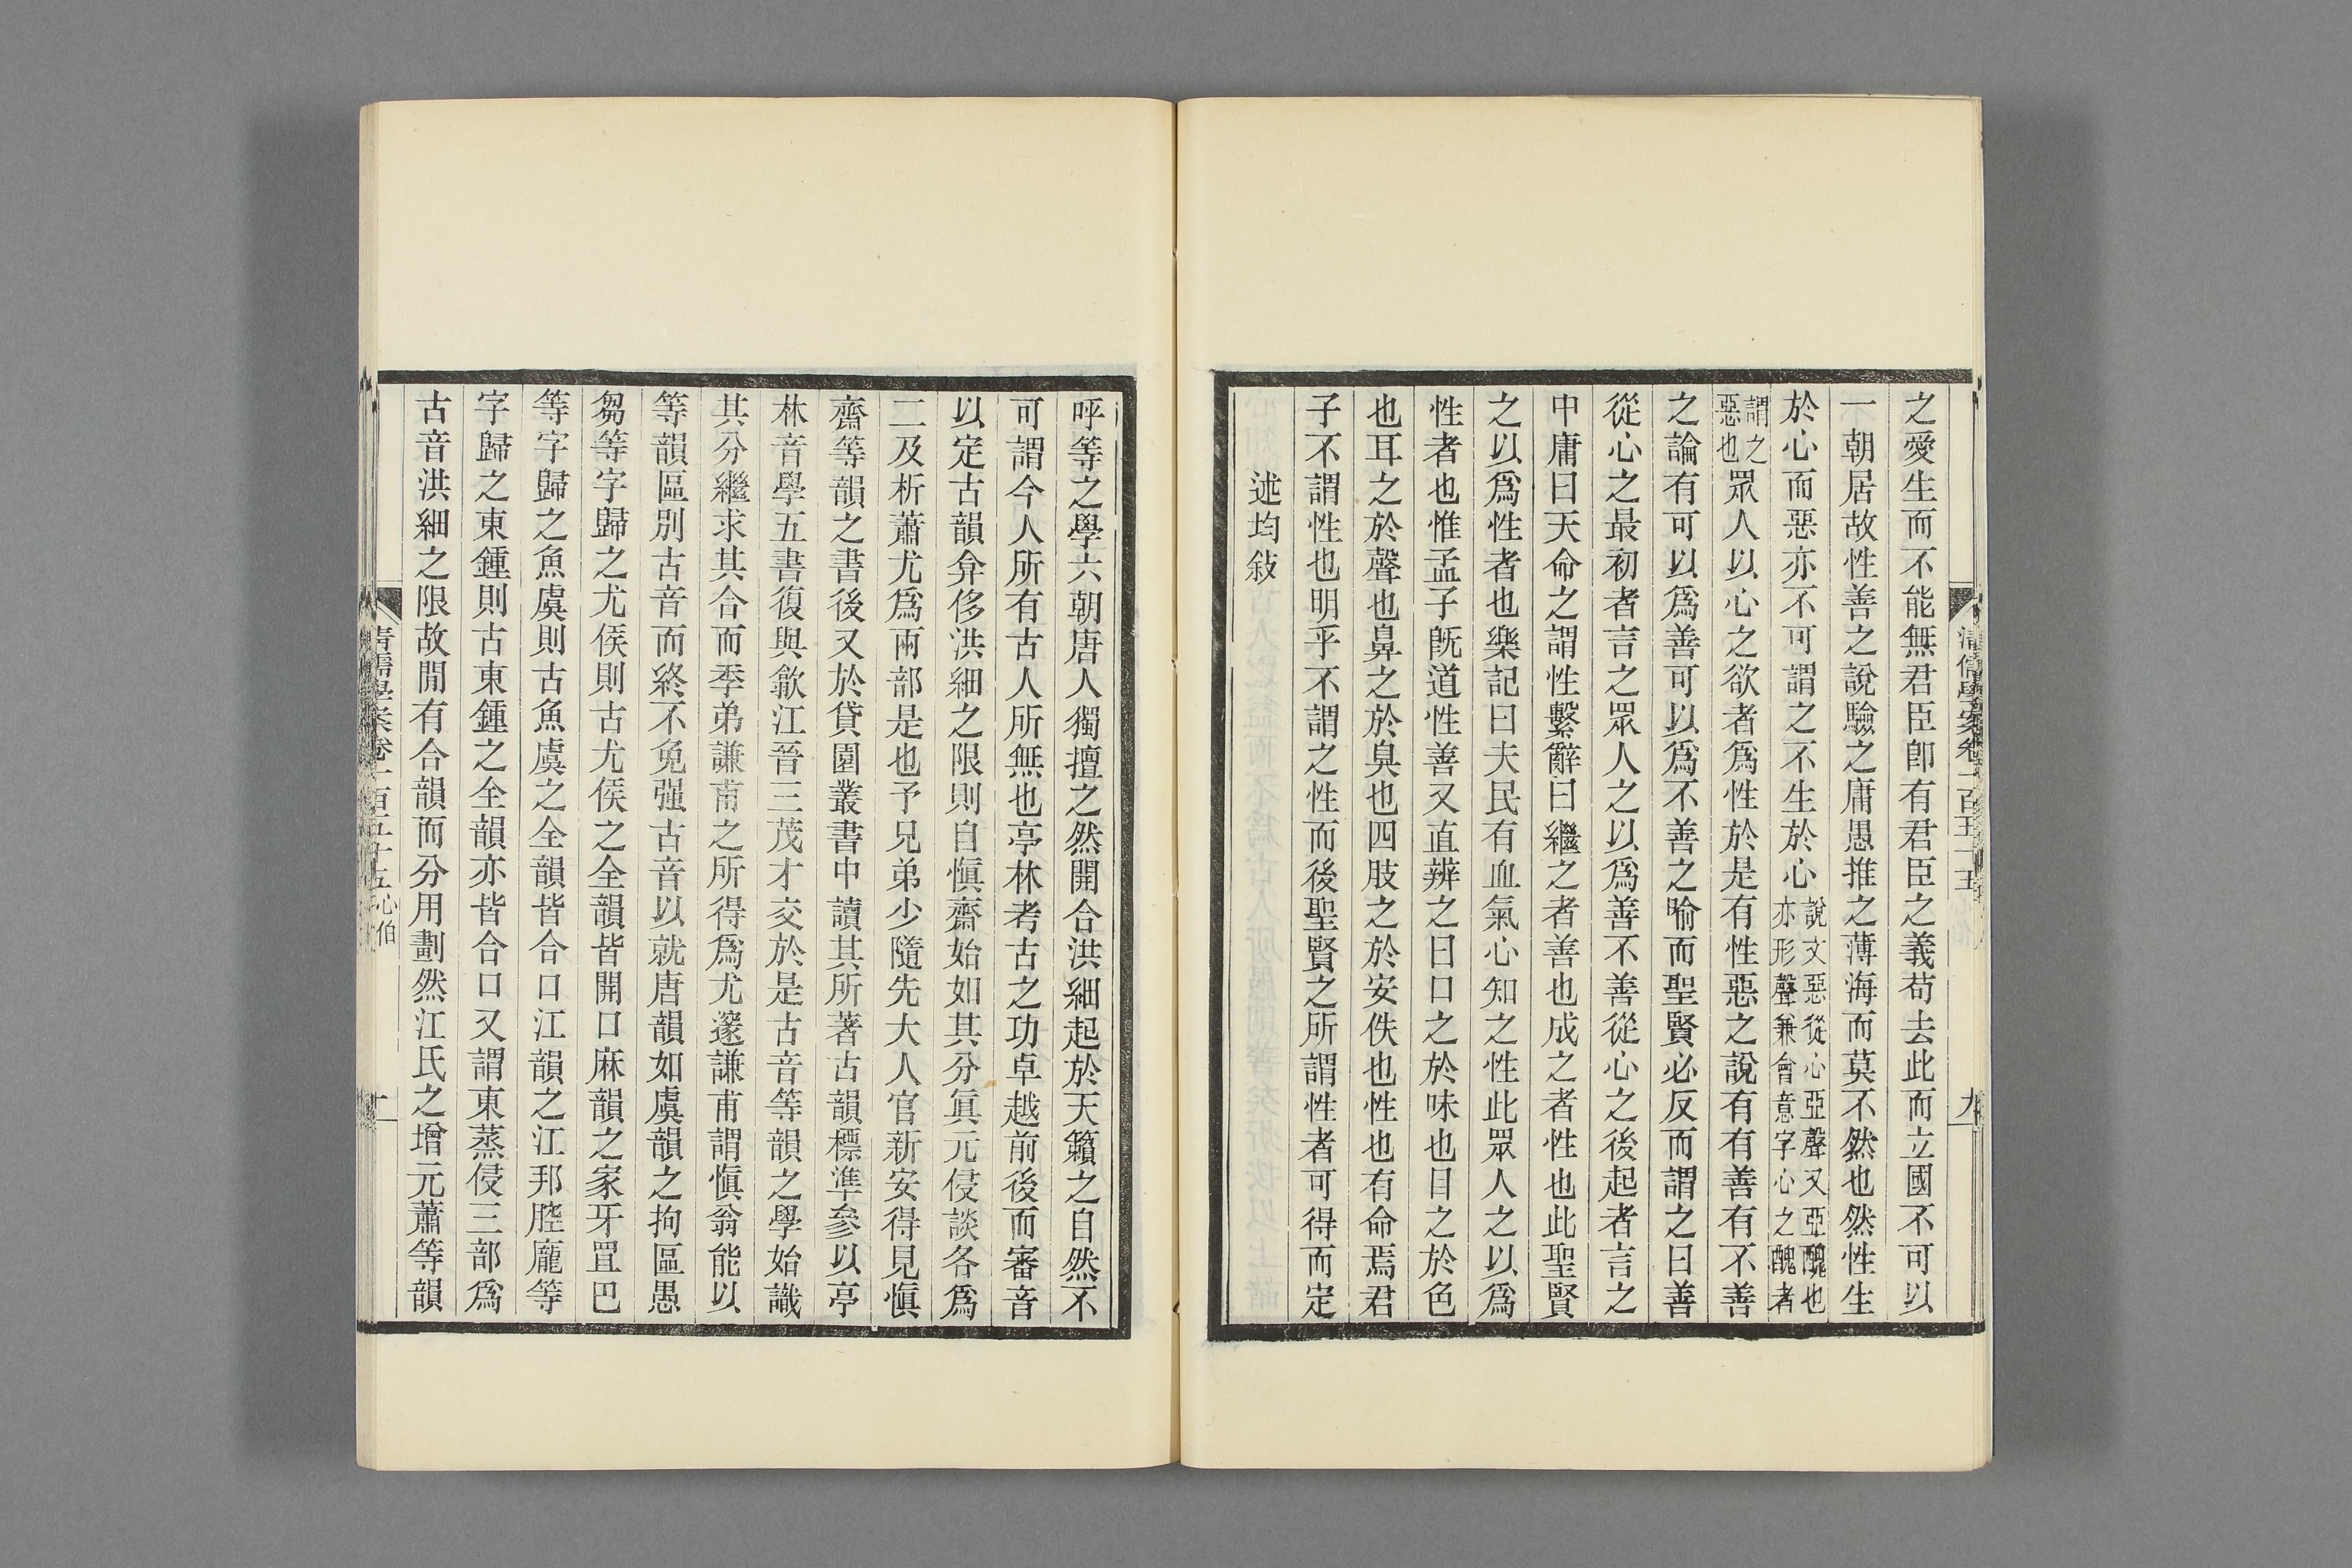 清儒學案卷一百五十五
九
之愛生而不能無君臣卽有君臣之義苟去此而立國不可以
一朝居故性善之說驗之庸愚推之薄海而莫不然也然性生
於心而惡亦不可謂之不生於心說文惡從心亞聲又亞醜也亦形聲兼會意字心之醜者
謂之惡也眾人以心之欲者爲性於是有性惡之說有有善有不善
之論有可以爲善可以爲不善之喻而聖賢必反而謂之曰善
從心之最初者言之眾人之以爲善不善從心之後起者言之
中庸曰天命之謂性繫辭曰繼之者善也成之者性也此聖賢
之以爲性者也樂記曰夫民有血氣心知之性此眾人之以爲
性者也惟孟子旣道性善又直辨之曰口之於味也目之於色
也耳之於聲也鼻之於臭也四肢之於安佚也性也有命焉君
子不謂性也明乎不謂之性而後聖賢之所謂性者可得而定
述均敍
呼等之學六朝唐人獨擅之然開合洪細起於天籟之自然不
可謂今人所有古人所無也亭林考古之功卓越前後而審音
以定古韻弇侈洪細之限則自愼齋始如其分眞元侵談各爲
二及析蕭尤爲兩部是也予兄弟少隨先大人官新安得見愼
齋等韻之書後又於貸園叢書中讀其所著古韻標準參以亭
林音學五書復與歙江晉三茂才交於是古音等韻之學始識
其分繼求其合而季弟謙甫之所得爲尤邃謙甫謂愼翁能以
等韻區別古音而終不免强古音以就唐韻如虞韻之拘區愚
芻等字歸之尤矦則古尤矦之全韻皆開口麻韻之家牙罝巴
等字歸之魚虞則古魚虞之全韻皆合口江韻之江邦腔龐等
字歸之東鍾則古東鍾之全韻亦皆合口又謂東蒸侵三部爲
古音洪細之限故閒有合韻而分用劃然江氏之增元蕭等韻
清儒學案卷一百五十五心伯
十